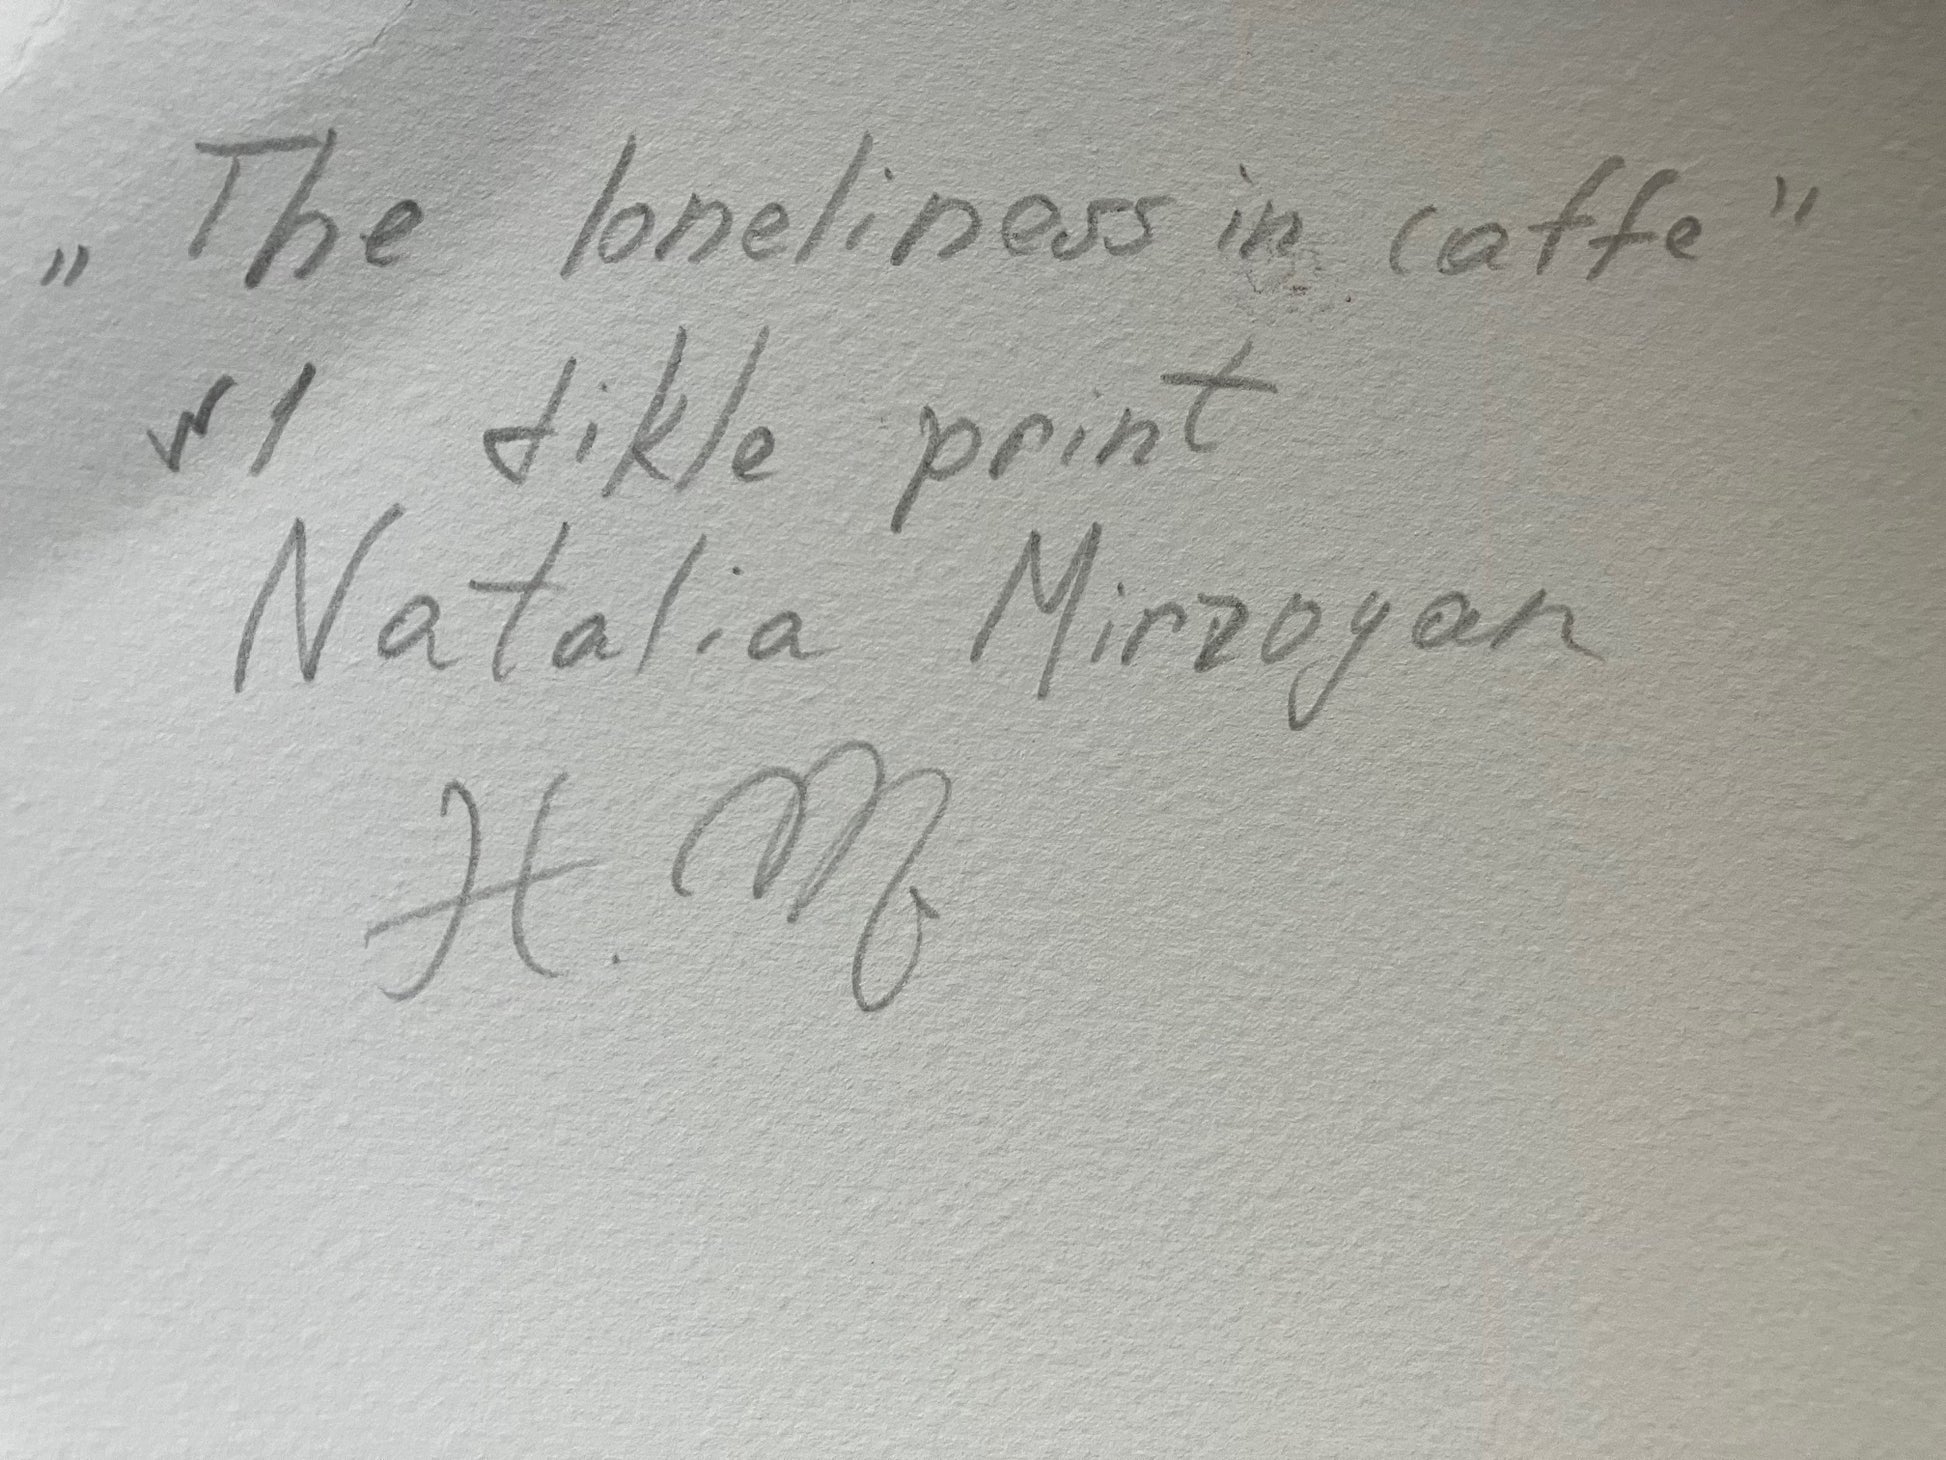 „The loneliness in caffe"
№1 tikle print
Natalia Mirzoyan
H. M